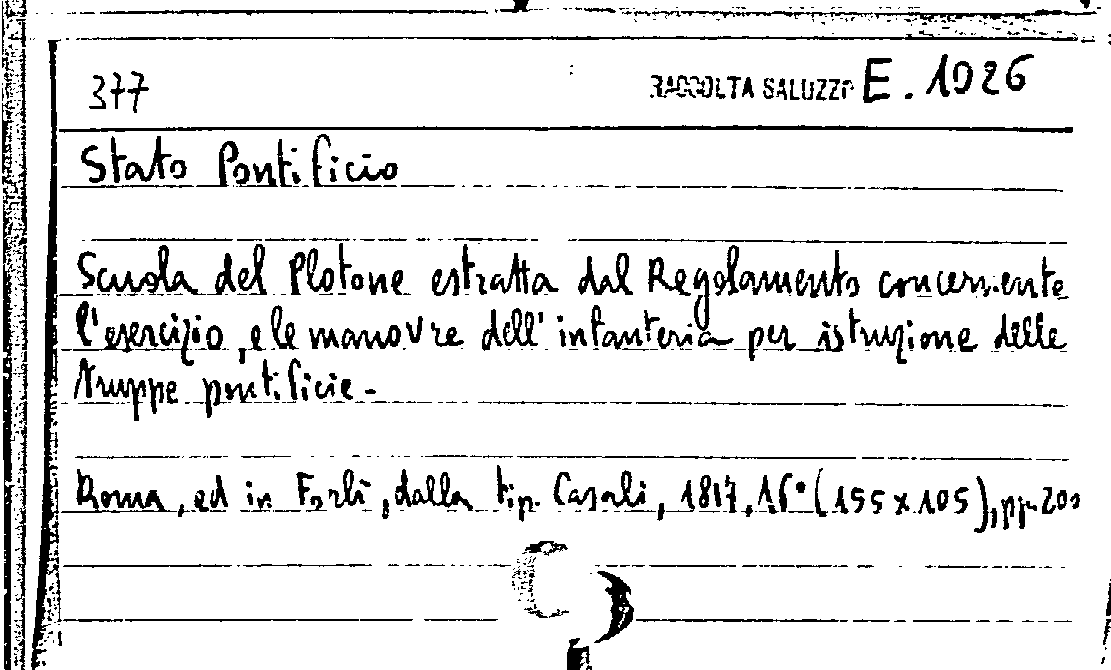 377 RACCOLTA SALUZZO E. 1026
Stato Pontificio
Scuola del Plotone estratta dal Regolamento concernente
l'esercizio, e le manovre dell'infanteria per istruzione delle
truppe pontificie -
Roma, ed in Forlì, dalla tip. Casali, 1817, 16° (155 x 105), pp. 200